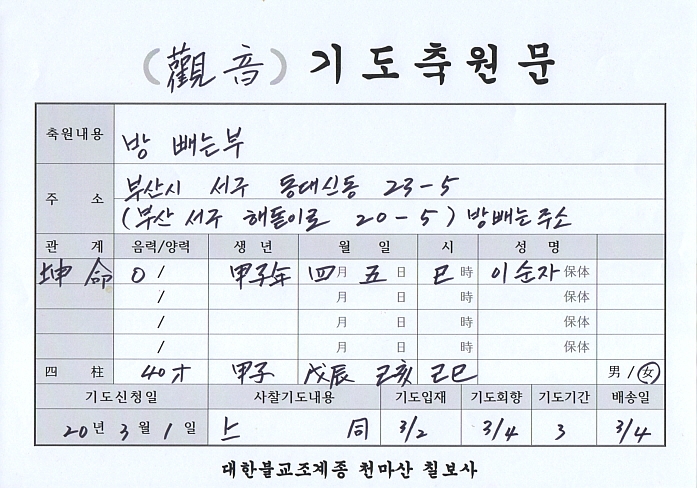 (觀音) 기도축원문
축원내용 방 빼는부
주 소 부산시 서구 동대신동 23-5
(부산 서구 해돋이로 20-5) 방빼는주소
관 계 음력/양력 생 년 월 일 시 성 명
坤命 0 / 甲子年 四月 五日 巳時 이순자 保体
/ 月 日 時 保体
/ 月 日 時 保体
/ 月 日 時 保体
四 柱 40才 甲子 戊辰 己亥 己巳 男 / 女
기도신청일 사찰기도내용 기도입재 기도회향 기도기간 배송일
20年 3月 1일 上 同 3/2 3/4 3 3/4
대한불교조계종 천마산 칠보사